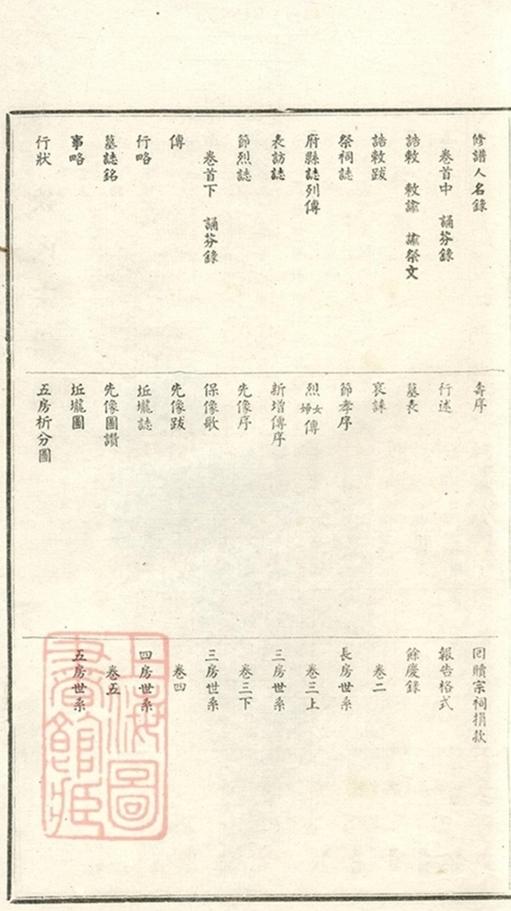 修譜人名錄
卷首中　誦芬錄
誥敕　敕諭　諭祭文
誥敕跋
祭祠誌
府縣誌列傳
表訪誌
節烈誌
卷首下　誦芬錄
傳
行略
墓誌銘
事略
行狀
壽序
行述
墓表
哀誄
節孝序
烈女婦傳
新增傳序
先像序
保像歌
先像跋
坵壠誌
先像圖讚
坵壠圖
五房析分圖
回贖宗祠捐款
報告格式
餘慶錄
卷二
長房世系
卷三上
三房世系
卷三下
三房世系
卷四
四房世系
卷五
五房世系
上海圖
書館藏